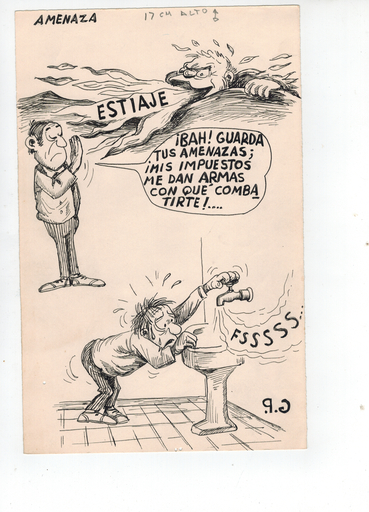 AMENAZA
17 CM ALTO
ESTIAJE
¡BAH! GUARDA
TUS AMENAZAS;
¡MIS IMPUESTOS
ME DAN ARMAS
CON QUE COMBA
TIRTE!....
FSSSSS..